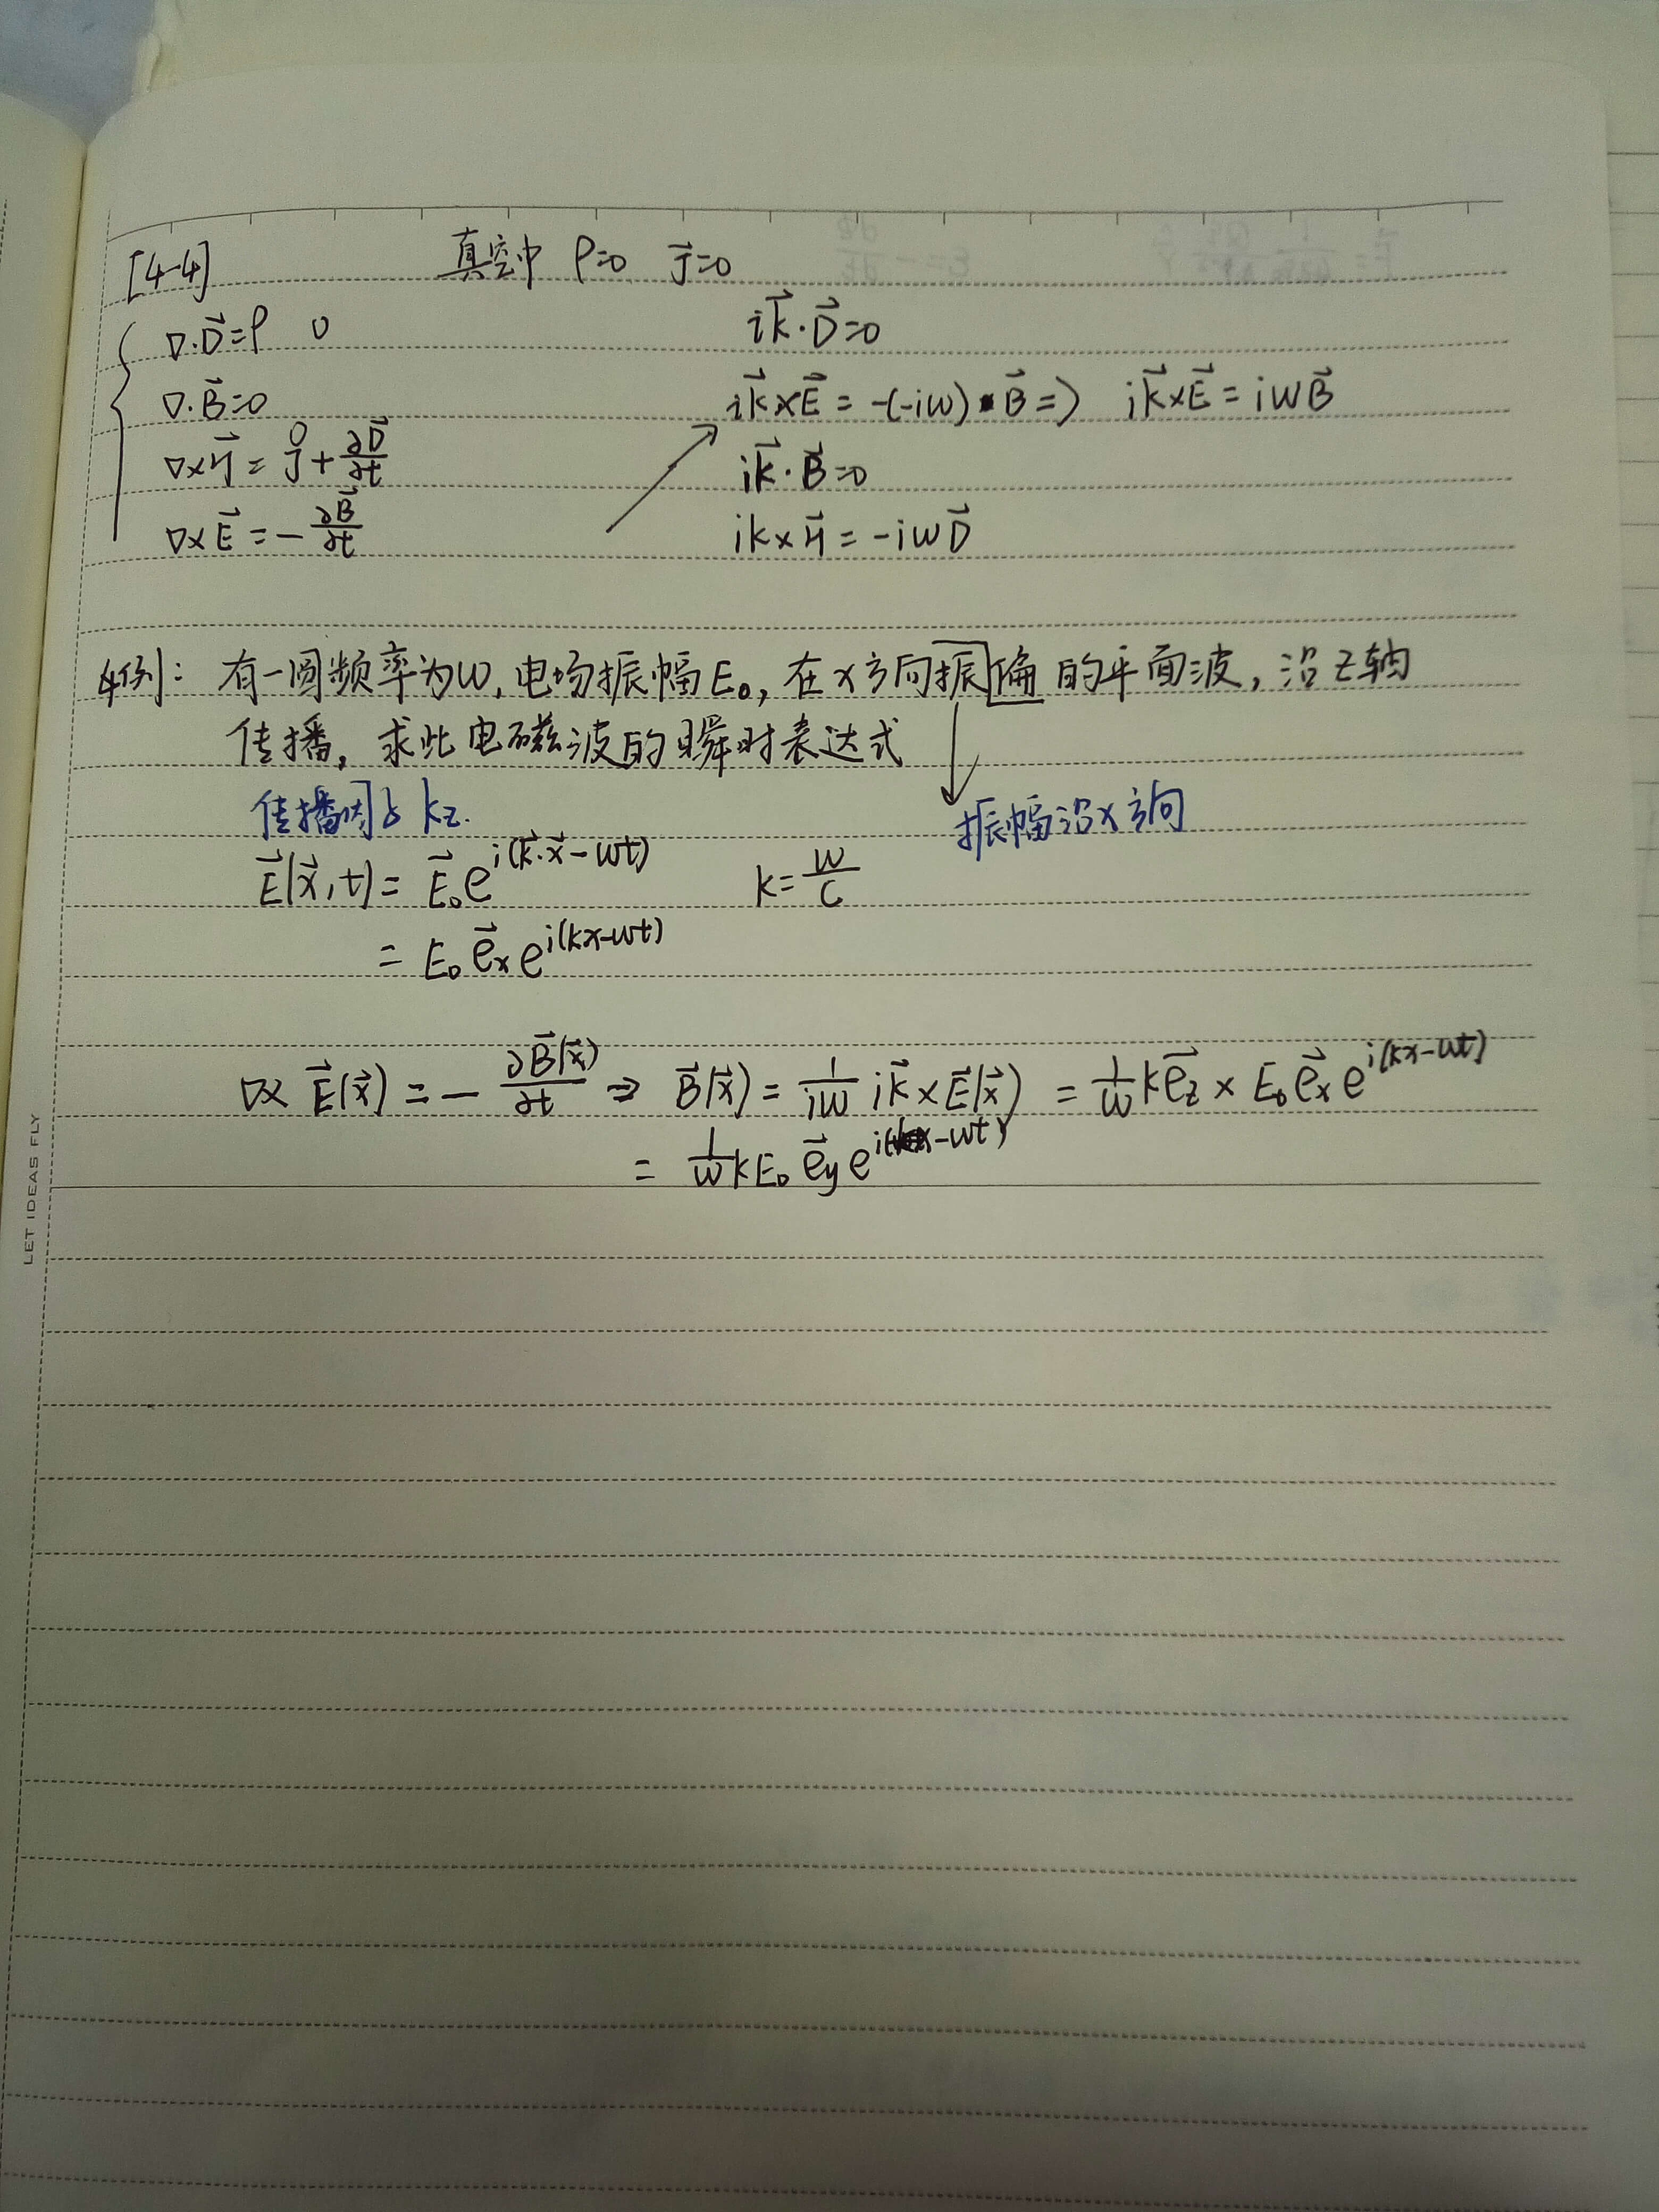 [4-4] 真空中 ρ=0 J⃗=0
∇·D⃗=ρ 0 ik⃗·D⃗=0
∇·B⃗=0 ik⃗×E⃗ = -(-iω)·B⃗ => ik⃗×E⃗ = iωB⃗
∇×H⃗ = J⃗ 0 + ∂D⃗/∂t ik⃗·B⃗=0
∇×E⃗ = -∂B⃗/∂t ik×H⃗ = -iωD⃗
例: 有一圆频率为ω, 电场振幅E₀, 在x方向振偏的平面波, 沿z轴
传播, 求此电磁波的瞬时表达式
传播因子 kz. 振幅沿x方向
E⃗(x⃗,t) = E⃗₀e^{i(k⃗·x⃗-ωt)} k=ω/c
= E₀e⃗ₓe^{i(kx-ωt)}
∇×E⃗(x⃗) = -∂B⃗(x⃗)/∂t ⇒ B⃗(x⃗) = 1/iω ik⃗×E⃗(x⃗) = 1/ω ke⃗_z × E₀e⃗ₓe^{i(kx-ωt)}
= 1/ω kE₀ e⃗_y e^{i(kx-ωt)}
LET IDEAS FLY